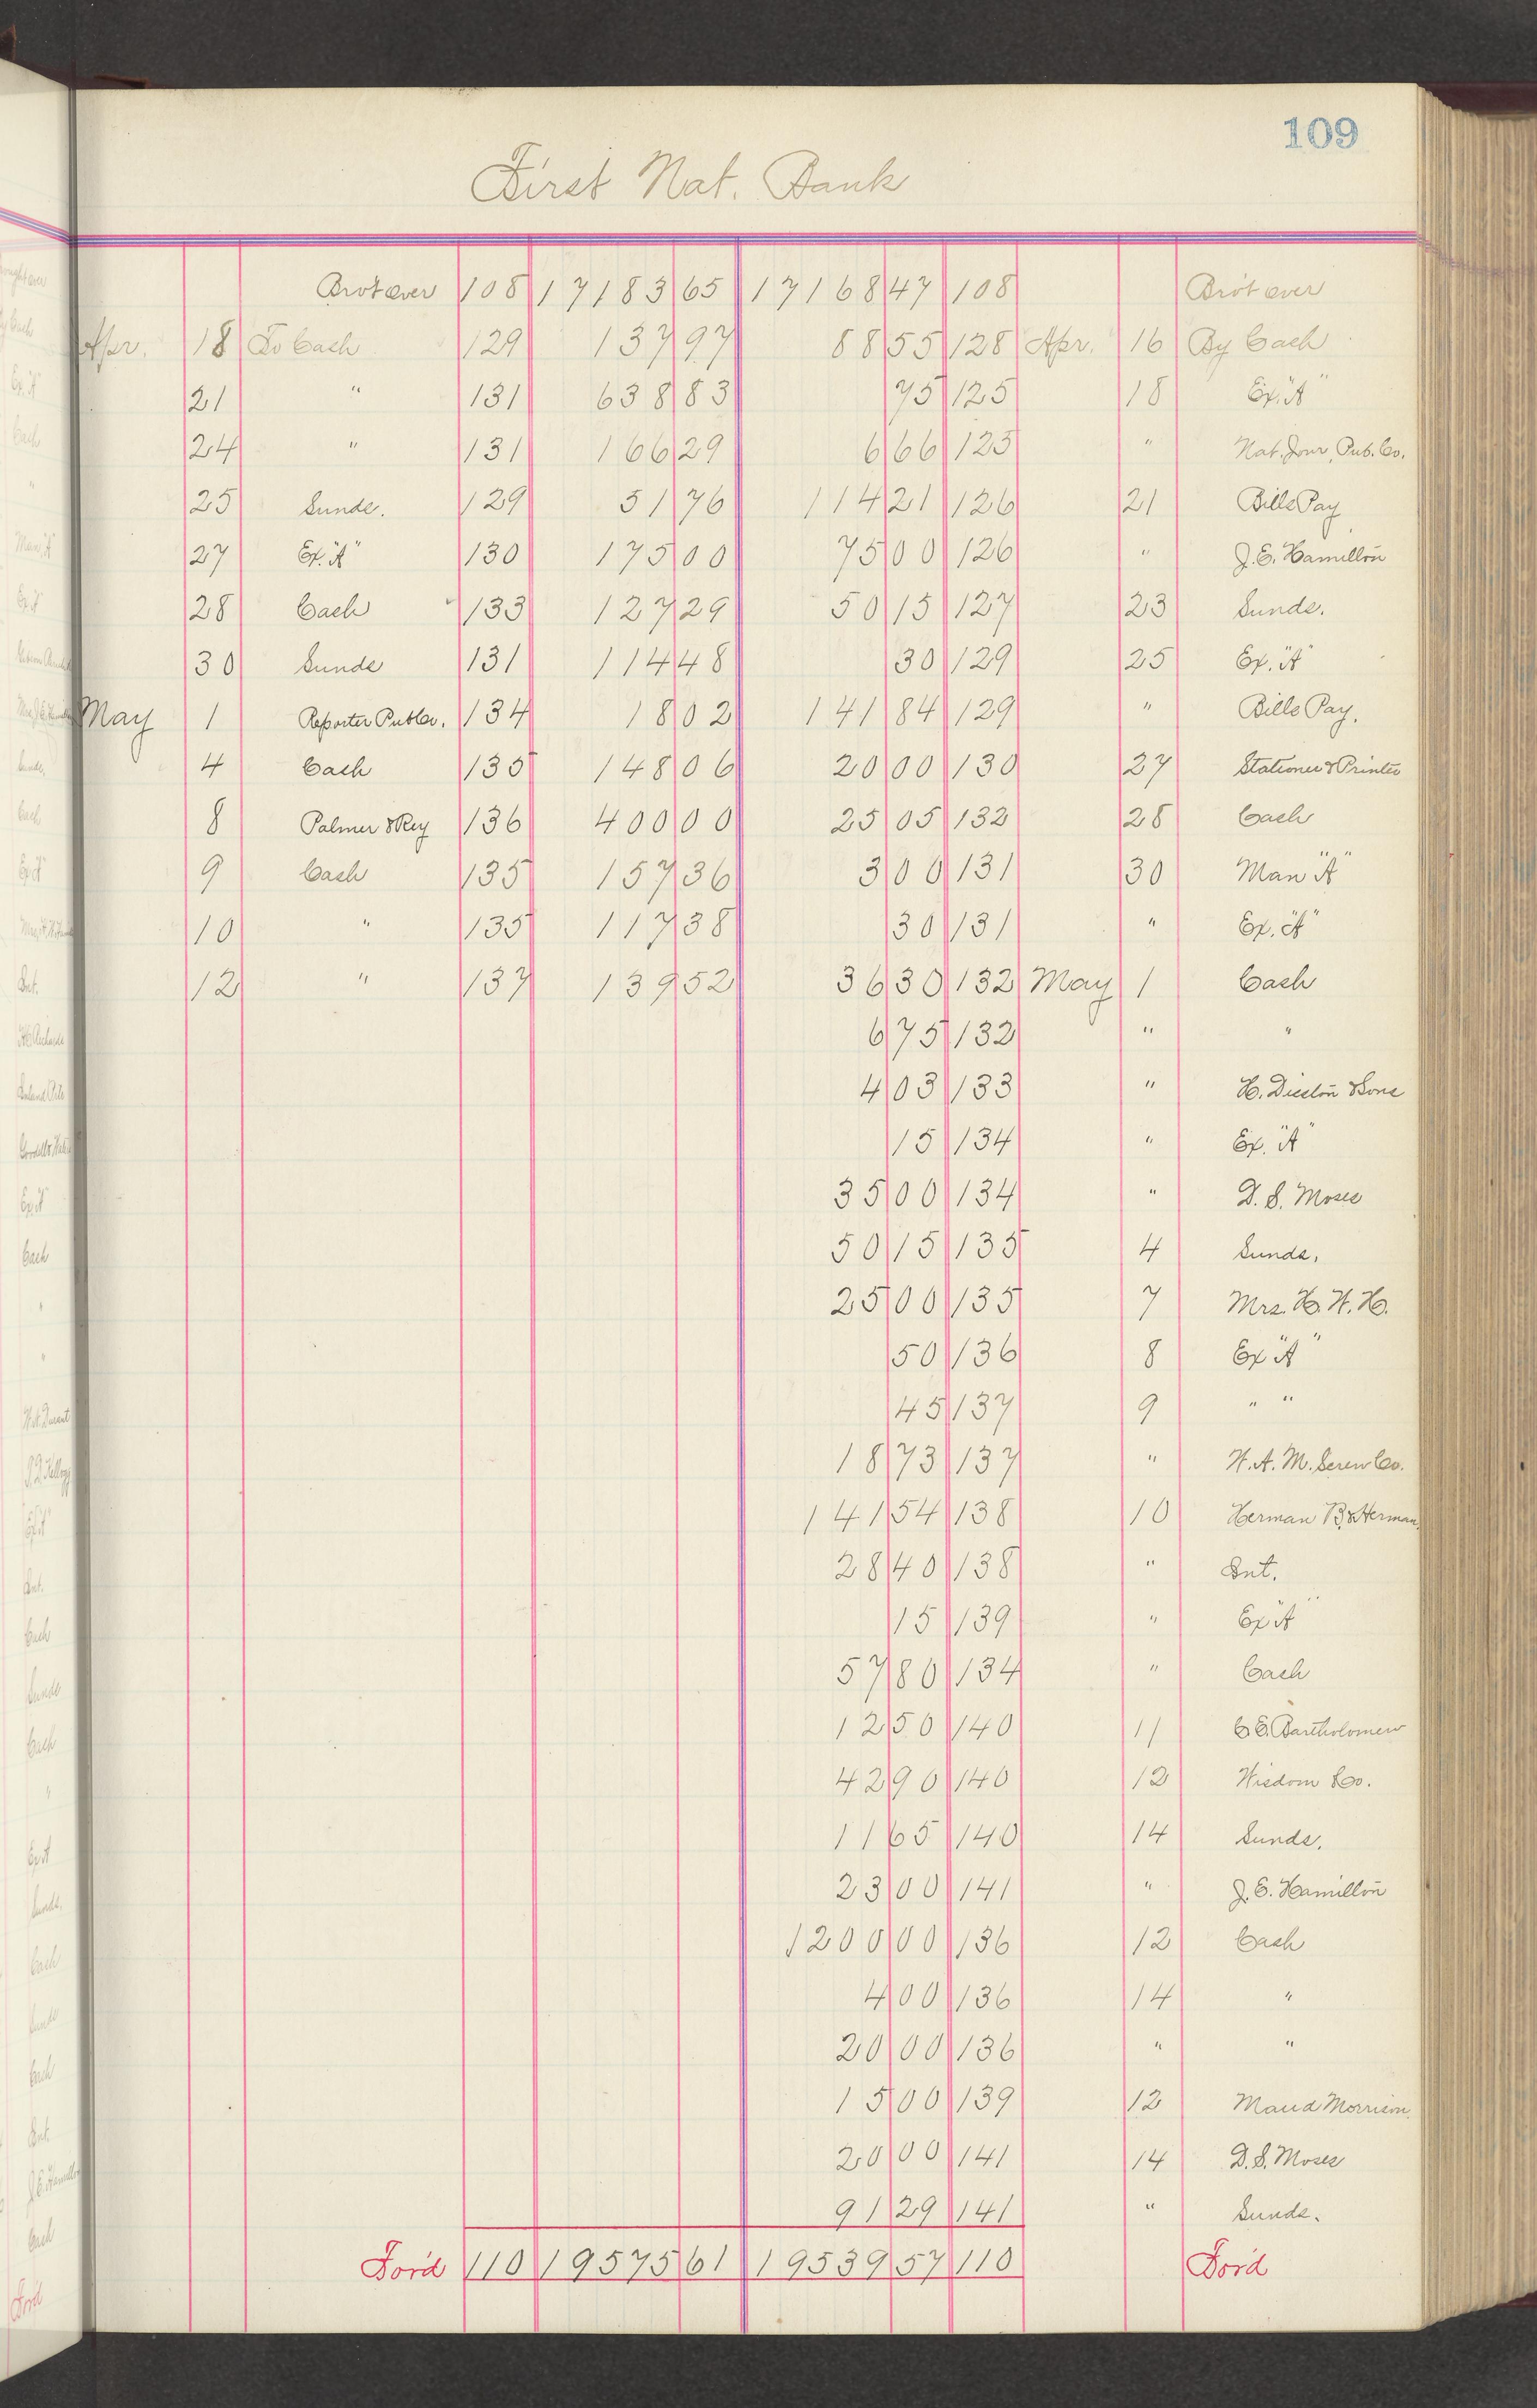 109
First Nat. Bank
Bro't over 108 17183 65 17168 47 108 Bro't over
Apr. 18 To Cash 129 137 97 88 55 128 Apr. 16 By Cash
21 " 131 638 83 75 125 18 Ex. "A"
24 " 131 166 29 6 66 125 " Nat. Jour. Pub. Co.
25 Sunds. 129 51 76 114 21 126 21 Bills Pay
27 Ex. "A" 130 175 00 75 00 126 " J. E. Hamilton
28 Cash 133 127 29 50 15 127 23 Sunds.
30 Sunds 131 114 48 30 129 25 Ex. "A"
May 1 Reporter Pub Co. 134 18 02 141 84 129 " Bills Pay.
4 Cash 135 148 06 20 00 130 27 Stationer & Printer
8 Palmer & Rey 136 400 00 25 05 132 28 Cash
9 Cash 135 157 36 3 00 131 30 Man "A"
10 " 135 117 38 30 131 " Ex. "A"
12 " 137 139 52 36 30 132 May 1 Cash
6 75 132 " "
4 03 133 " H. Disston & Sons
15 134 " Ex. "A"
35 00 134 " D. S. Moses
50 15 135 4 Sunds.
25 00 135 7 Mrs. H. W. H.
50 136 8 Ex "A"
45 137 9 " "
18 73 137 " W. A. M. Screw Co.
141 54 138 10 Herman B. & Herman.
28 40 138 " Int.
15 139 " Ex "A"
57 80 134 " Cash
12 50 140 11 C E. Bartholomew
42 90 140 12 Wisdom Co.
11 65 140 14 Sunds.
23 00 141 " J. E. Hamilton
1200 00 136 12 Cash
4 00 136 14 "
20 00 136 " "
15 00 139 12 Maud Morrison.
20 00 141 14 D. S. Moses
91 29 141 " Sunds.
For'd 110 19575 61 19539 57 110 For'd